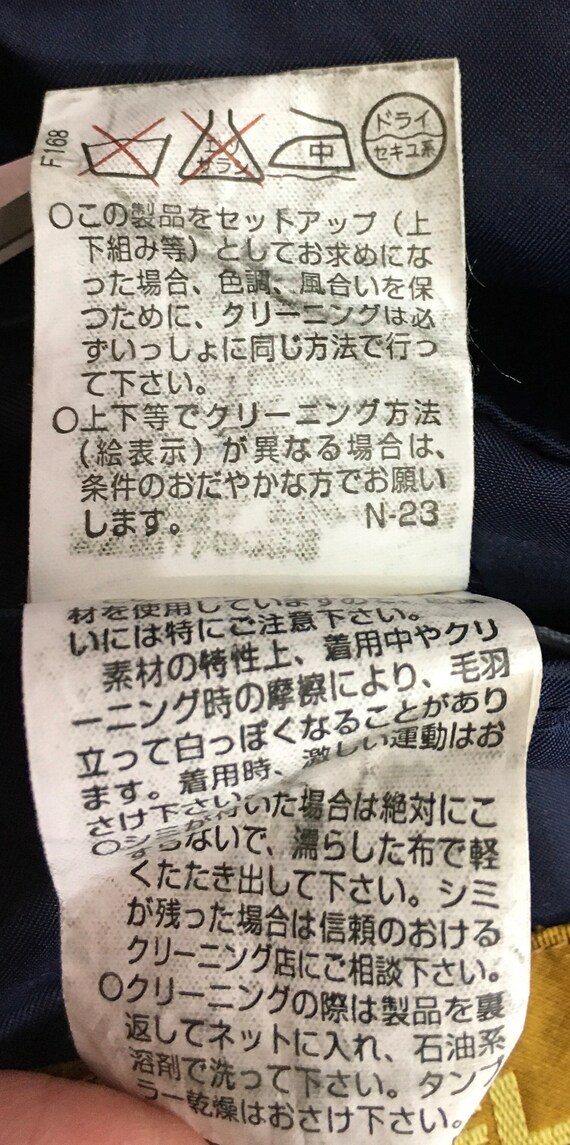 F168
エンソ
サラシ
中
ドライ
セキユ系
○この製品をセットアップ（上
下組み等）としてお求めにな
った場合、色調、風合いを保
つために、クリーニングは必
ずいっしょに同じ方法で行っ
て下さい。
○上下等でクリーニング方法
（絵表示）が異なる場合は、
条件のおだやかな方でお願い
します。 N-23
材を使用していますので
いには特にご注意下さい。
素材の特性上、着用中やクリ
ーニング時の摩擦により、毛羽
立って白っぽくなることがあり
ます。着用時、激しい運動はお
さけ下さい。
○シミが付いた場合は絶対にこ
すらないで、濡らした布で軽
くたたき出して下さい。シミ
が残った場合は信頼のおける
クリーニング店にご相談下さい。
○クリーニングの際は製品を裏
返してネットに入れ、石油系
溶剤で洗って下さい。タンブ
ラー乾燥はおさけ下さい。